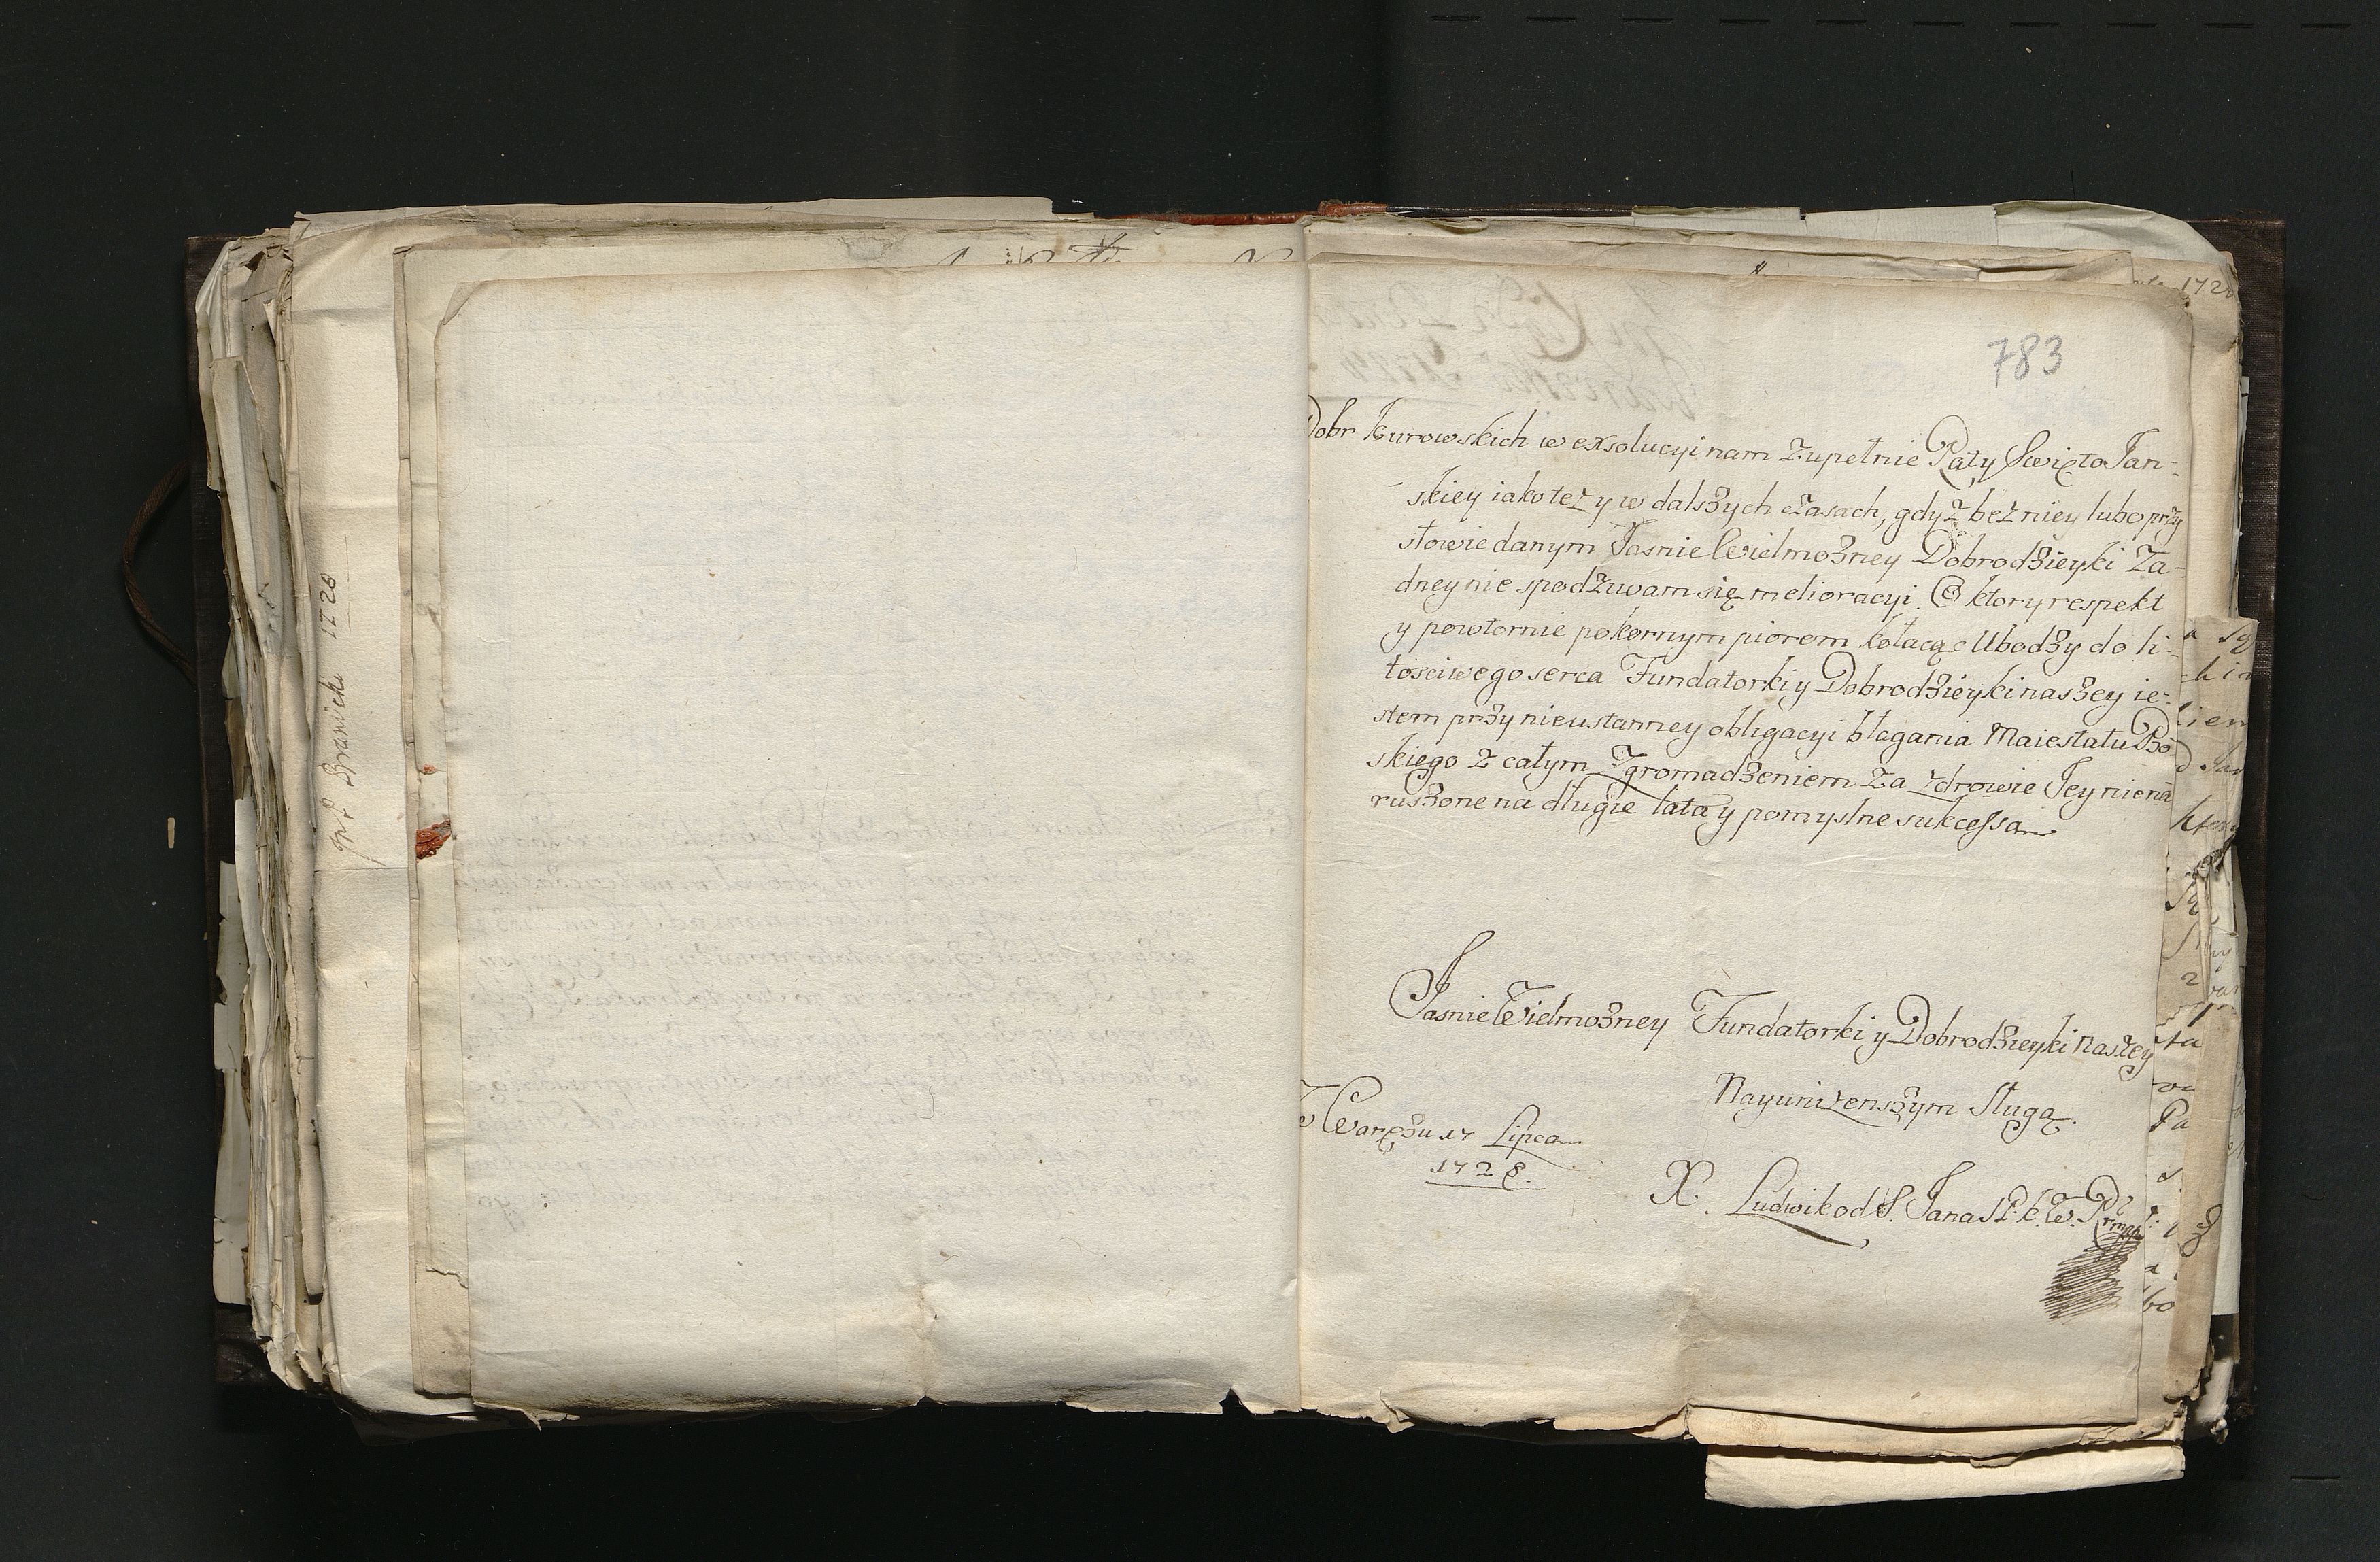 JP. Branicki 1728
783
Dobr Kurowskich w exsolucyi nam zupełnie Raty Swięto Jan-
skiey iako też y w dalszych czasach, gdyż bez niey lubo przy
słowie danym Jasnie Wielmożney Dobrodzieyki Ża-
dney nie spodzuwam się melioracyi. O ktory respekt
y powtornie pokornym piorem kołacąc Ubodzy do li-
tosciwego serca Fundatorki y Dobrodzieyki naszey ie-
stem przy nieustanney obligacyi błagania Maiestatu Bo
skiego z całym Zgromadzeniem za zdrowie Jey niena
ruszone na długie lata y pomyslne sukcessa
Jasnie Wielmożney Fundatorki y Dobrodzieyki Naszey
Nayunizenszym Sługą.
W Waręzu 17 Lipca
1728.
X. Ludwik od S. Jana